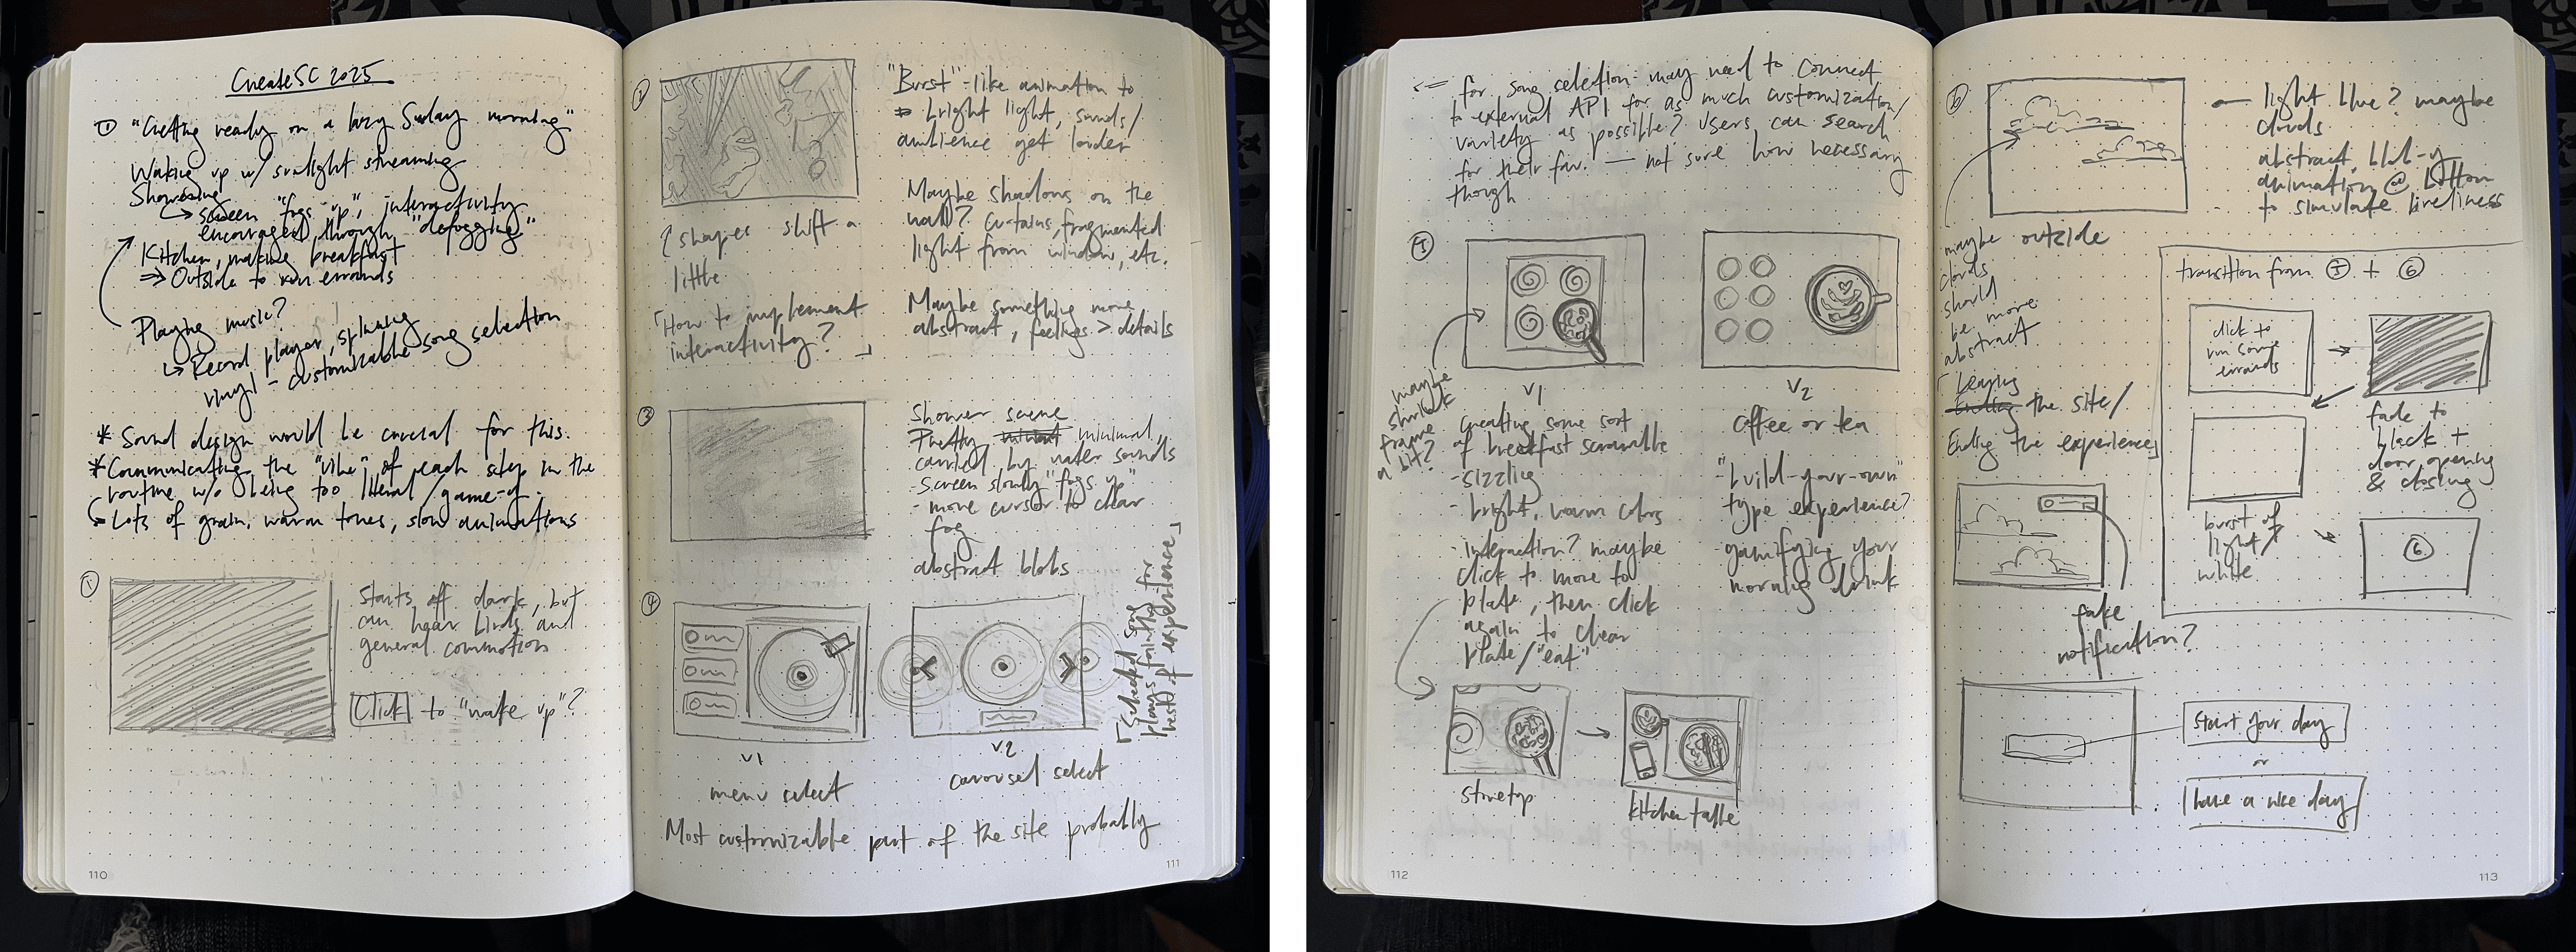 CreateSC 2025
① "Getting ready on a lazy Sunday morning"
Waking up w/ sunlight streaming
Showering
↳ screen "fogs up", interactivity
encouraged through "defogging"
Kitchen, making breakfast
⇒ Outside to run errands
Playing music?
↳ Record player, spinning
vinyl - customizable song selection
* Sound design would be crucial for this.
* Communicating the "vibe" of each step in the
routine w/o being too literal/game-y.
↳ Lots of grain, warm tones, slow animations
①
Starts off dark, but
can hear birds and
general commotion
Click to "wake up"?
110
2
"Burst"-like animation to
bright light, sounds/
ambience get louder
Maybe shadows on the
wall? curtains, fragmented
light from window, etc.
Maybe something more
abstract, feelings > details
shapes shift a
little
「How to implement
interactivity?」
③
Shower scene
Pretty minimal,
carried by water sounds
- Screen slowly "fogs up"
- move cursor to clear
fog
abstract blobs
④
v1
menu select
v2
carousel select
「Selected song
plays faintly for
rest of experience」
Most customizable part of the site probably
111
<= for song selection - may need to connect
to external API for as much customization/
variety as possible? Users can search
for their fav. — not sure how necessary
though
⑤
maybe
shrink
frame
a bit?
v1
creating some sort
of breakfast scramble
- sizzling
- bright, warm colors
- interaction? maybe
click to move to
plate, then click
again to clear
plate/"eat"
v2
coffee or tea
"build-your-own"
type experience?
gamifying your
morning drink
stovetop
→
kitchen table
112
6
light blue? maybe
clouds
abstract, blob-y
animation @ bottom
to simulate liveliness
outside
maybe
clouds
should
be more
abstract
transition from ⑤ + ⑥
click to
run some
errands
fade to
black +
door opening
& closing
burst of
light/
white
⑥
「Leaving
Ending the site/
Ending the experience」
fake
notification?
Start your day
or
Have a nice day
113